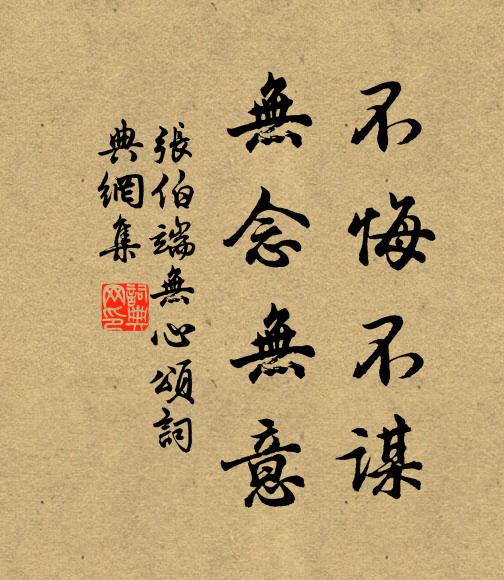 不悔不謀
無念無意
張伯端無心頌詞
典網集
詞典
網印